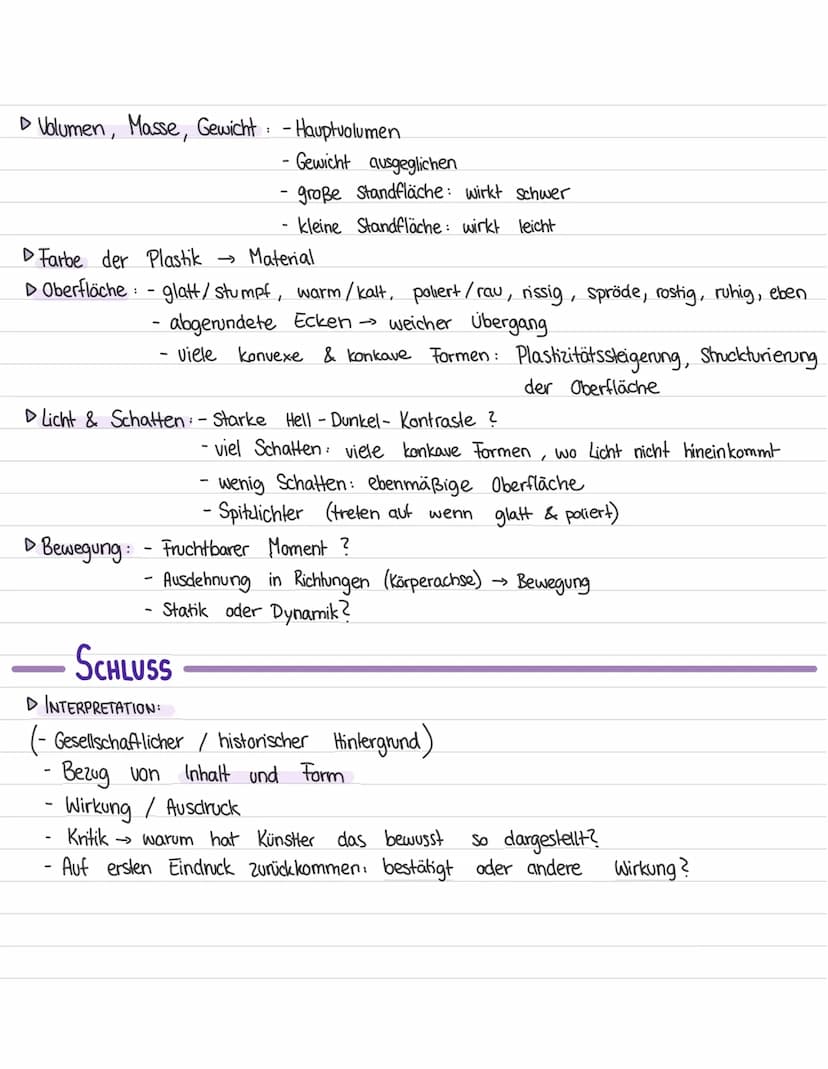 ▷ Volumen, Masse, Gewicht : - Hauptvolumen
- Gewicht ausgeglichen
- große Standfläche: wirkt schwer
- kleine Standfläche: wirkt leicht
▷ Farbe der Plastik → Material
▷ Oberfläche : - glatt/stumpf, warm/kalt, poliert/rau, rissig, spröde, rostig, ruhig, eben
- abgerundete Ecken → weicher Übergang
- viele konvexe & konkave Formen: Plastizitätssteigerung, Struckturierung
der Oberfläche
▷ Licht & Schatten: - Starke Hell - Dunkel - Kontraste ?
- viel Schatten: viele konkave Formen, wo Licht nicht hineinkommt
- wenig Schatten: ebenmäßige Oberfläche
- Spitzlichter (treten auf wenn glatt & poliert)
▷ Bewegung: - Fruchtbarer Moment ?
- Ausdehnung in Richtungen (Körperachse) → Bewegung
- Statik oder Dynamik?
SCHLUSS
▷ INTERPRETATION:
(- Gesellschaftlicher / historischer Hintergrund)
- Bezug von Inhalt und Form
- Wirkung / Ausdruck
- Kritik → warum hat Künstler das bewusst so dargestellt?
- Auf ersten Eindruck zurückkommen: bestätigt oder andere Wirkung?